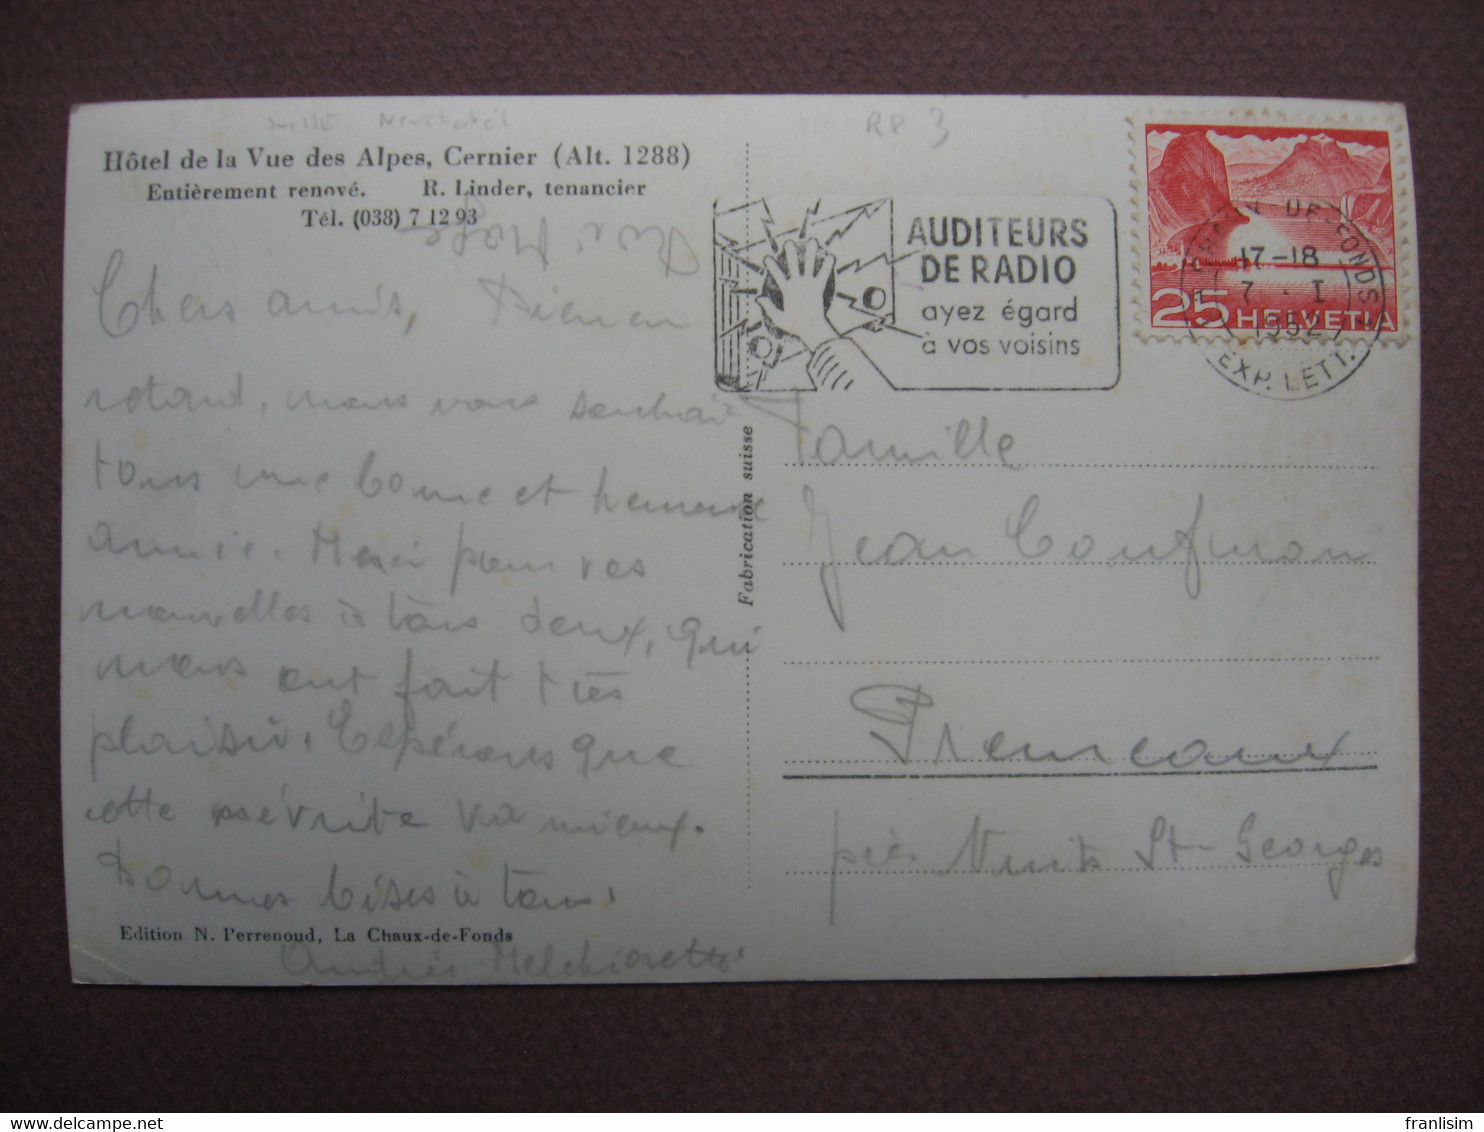 suisse Neuchatel
RP 3
Hôtel de la Vue des Alpes, Cernier (Alt. 1288)
Entièrement renové. R. Linder, tenancier
Tél. (038) 7 12 93
Chers amis, Bien en
retard, nous vous souhai
tons une bonne et heureuse
année. Merci pour vos
nouvelles à tous deux, qui
nous ont fait très
plaisir. Espérons que
cette névrite va mieux.
Bonnes bises à tous.
André Melchioretto
Edition N. Perrenoud, La Chaux-de-Fonds
Fabrication suisse
AUDITEURS
DE RADIO
ayez égard
à vos voisins
CHAUX DE FONDS
17-18
7 - I
1952
EXP. LETT.
25 HELVETIA
Famille
Jean
Premeaux
près Nuits St-Georges
Delcampe.net
franlisim